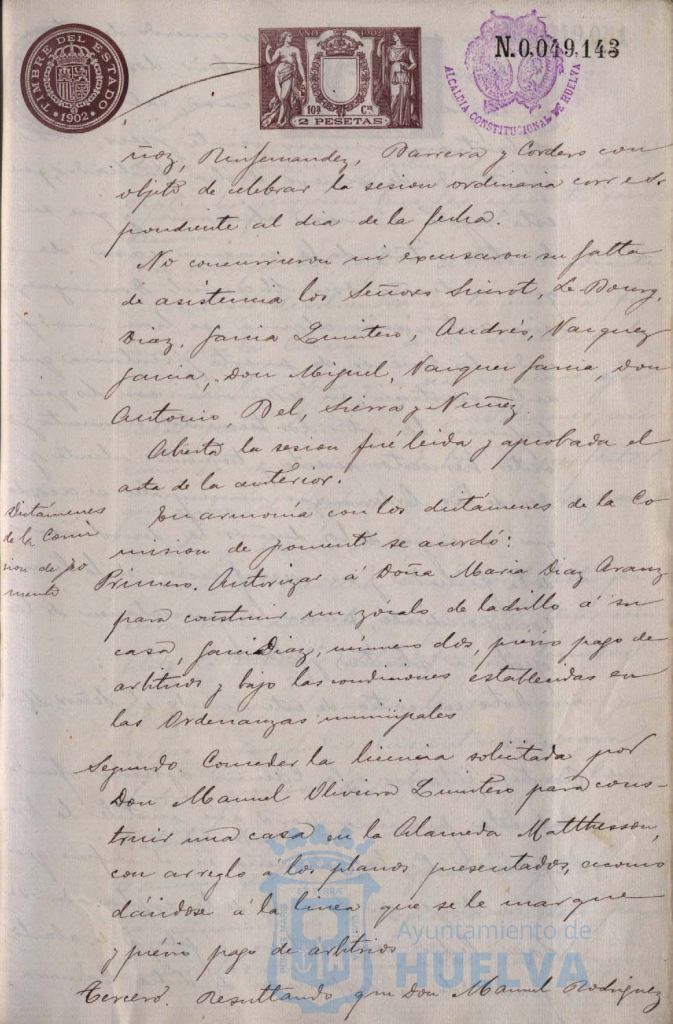 TIMBRE DEL ESTADO
1902
AÑO 1902
2 PESETAS
ALCALDIA CONSTITUCIONAL DE HUELVA
N.0.049,143
ñoz, Rinfernandez, Barrera y Cordero con
objeto de celebrar la sesion ordinaria corres-
pondiente al dia de la fecha.
No concurrieron ni excusaron su falta
de asistencia los Señores Le Bourg,
Diaz, Garcia Quintero, Andrés, Vazquez
Garcia, Don Miguel, Vazquez Garcia, Don
Antonio, Bel, Sierra y Nuñez.
Abierta la sesion fué leida y aprobada el
acta de la anterior.
Dictámenes
de la Comi
sion de fo
mento
En armonía con los dictámenes de la Co
mision de fomento se acordó:
Primero. Autorizar á Doña Maria Diaz Aranz
para construir un zócalo de ladrillo á su
casa, Garci Diaz, número dos, prévio pago de
arbitrios y bajo las condiciones establecidas en
las Ordenanzas municipales
Segundo. Conceder la licencia solicitada por
Don Manuel Oliveira Quintero para cons-
truir una casa en la Alameda Matthesson,
con arreglo á los planos presentados, acomo
dándose á la linea que se le marque
y prévio pago de arbitrios
Tercero. Resultando que Don Manuel Rodriguez
Ayuntamiento de
HUELVA